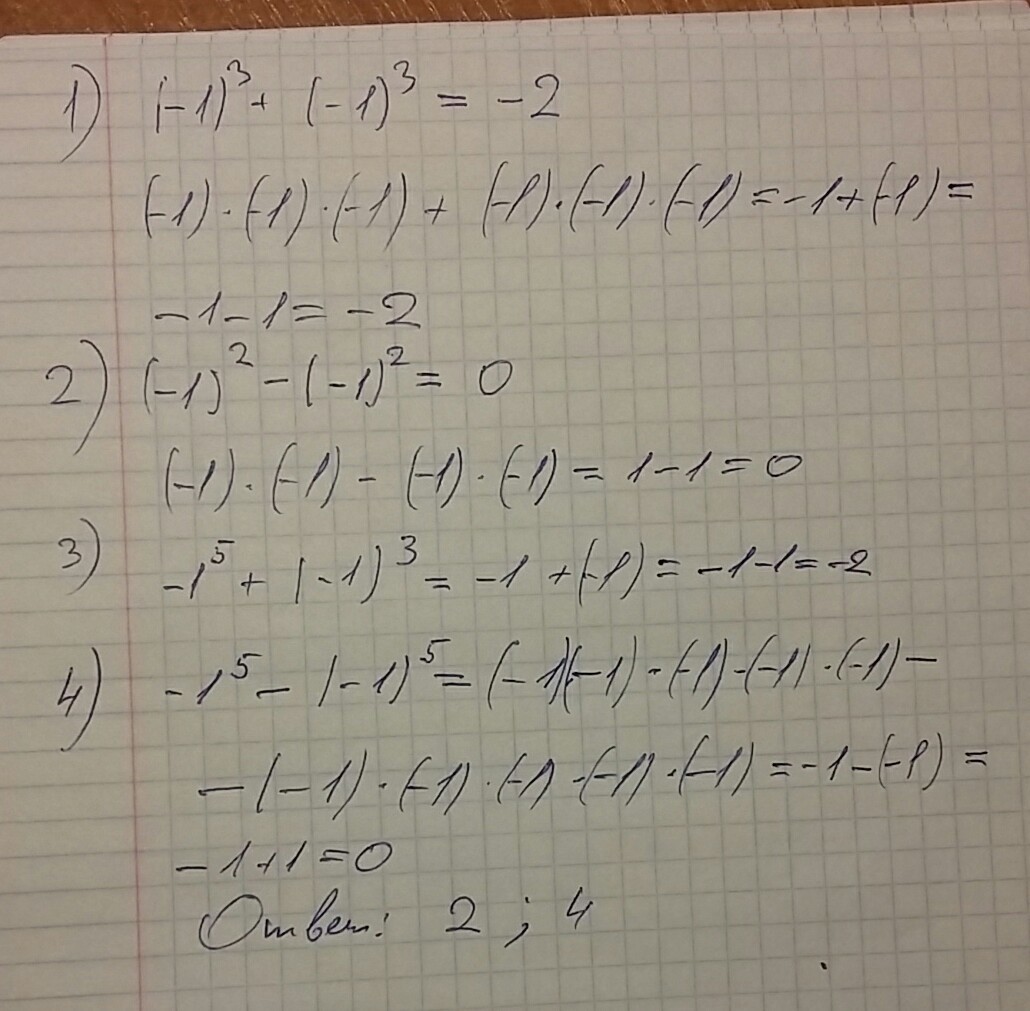 1) (-1)³ + (-1)³ = -2
(-1)·(-1)·(-1) + (-1)·(-1)·(-1) = -1+(-1) =
-1-1 = -2
2) (-1)² - (-1)² = 0
(-1)·(-1) - (-1)·(-1) = 1-1 = 0
3) -1⁵ + (-1)³ = -1 +(-1) = -1-1 = -2
4) -1⁵ - (-1)⁵ = (-1)(-1)·(-1)·(-1)·(-1) -
-(-1)·(-1)·(-1)·(-1)·(-1) = -1-(-1) =
-1+1 = 0
Ответ: 2 ; 4